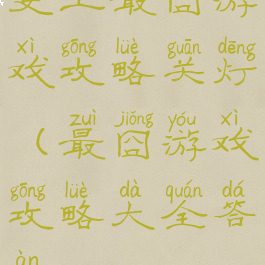 上最囧游
xì gōng lüè guān dēng
戏攻略关灯
zuì jiǒng yóu xì
（最囧游戏
gōng lüè dà quán dá
攻略大全答
àn